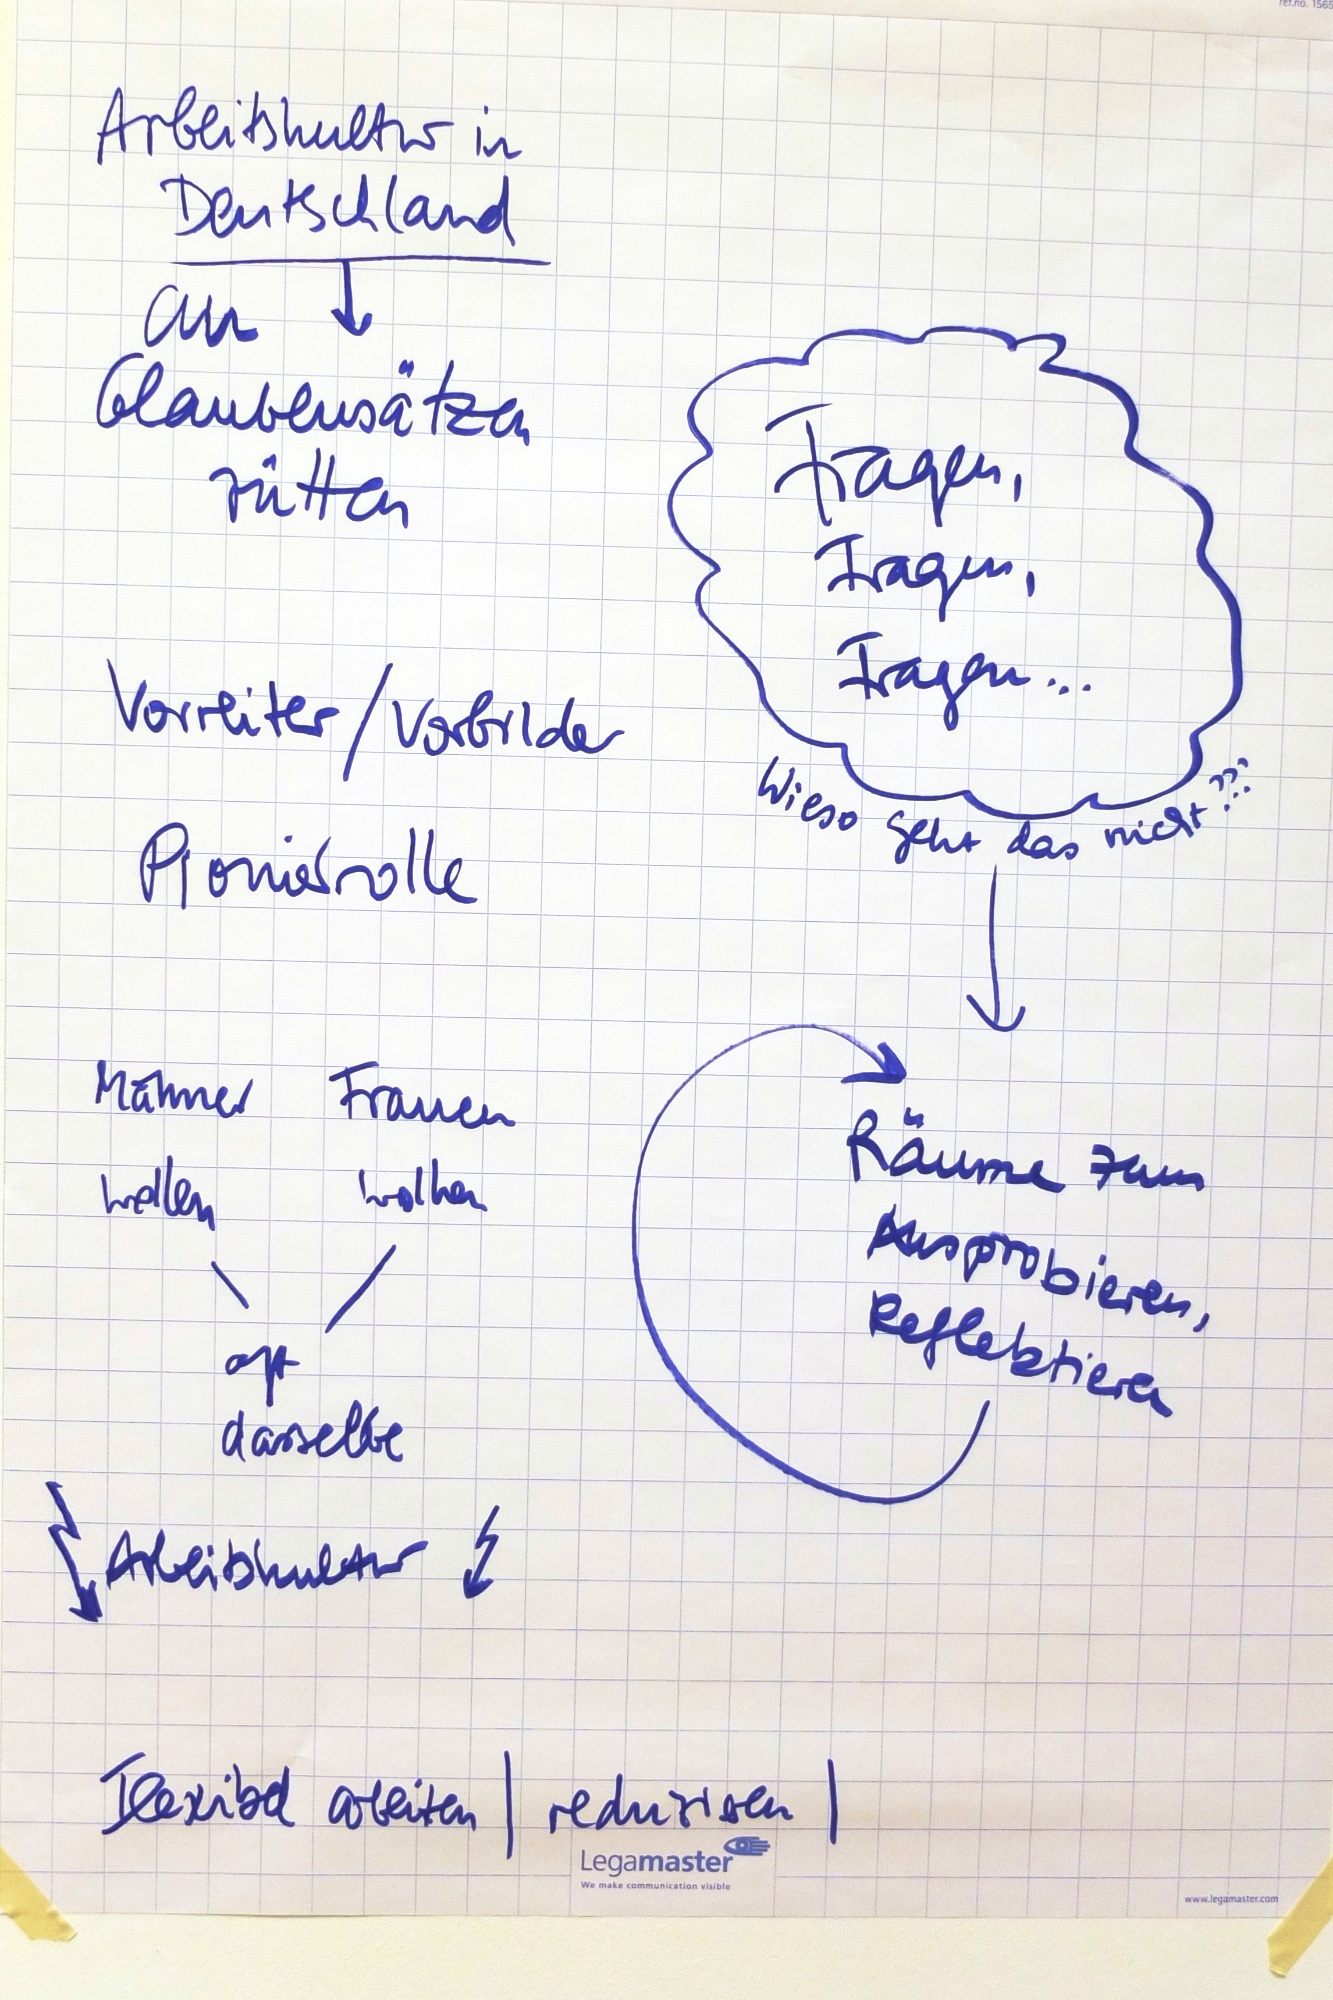 ref.no. 1565
Arbeitskultur in
Deutschland
an
Glaubensätzen
rütteln
Vorreiter / Vorbilder
Pionierrolle
Männer Frauen
wollen wollen
oft
dasselbe
Arbeitskultur
Fragen,
Fragen,
Fragen...
Wieso geht das nicht???
Räume zum
Ausprobieren,
Reflektieren
Flexibel arbeiten | reduzieren |
Legamaster
We make communication visible
www.legamaster.com